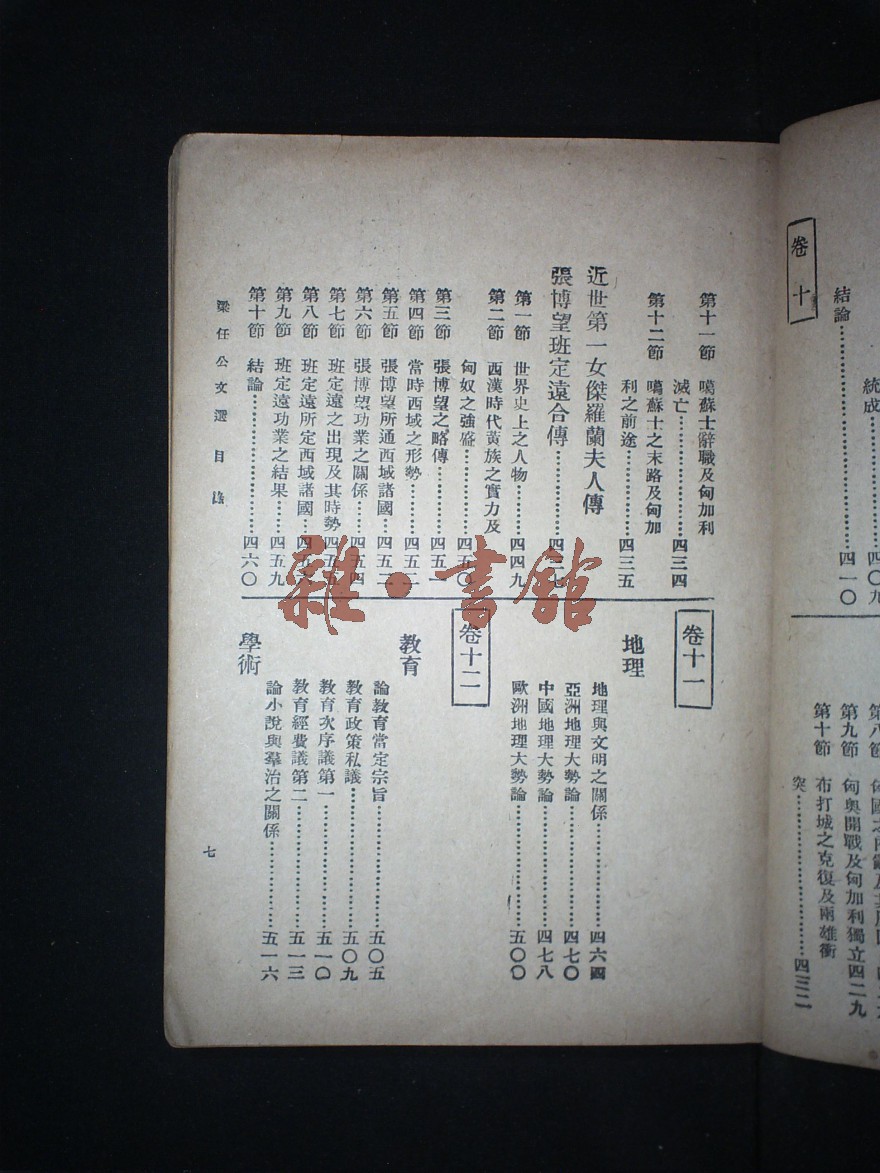 卷十
結論……四一〇
統成……四〇九
第九節 匈奧開戰及匈加利獨立四二九
第十節 布打城之克復及兩雄衝
突……四三二
第十一節 噶蘇士辭職及匈加利
滅亡……四三四
第十二節 噶蘇士之末路及匈加
利之前途……四三五
近世第一女傑羅蘭夫人傳
張博望班定遠合傳
第一節 世界史上之人物……四四九
第二節 西漢時代黃族之實力及
匈奴之強盛……四五〇
第三節 張博望之略傳……四五一
第四節 當時西域之形勢……四五二
第五節 張博望所通西域諸國……四五二
第六節 張博望功業之關係……四五四
第七節 班定遠之出現及其時勢四五五
第八節 班定遠所定西域諸國……四五六
第九節 班定遠功業之結果……四五九
第十節 結論……四六〇
卷十一
地理
地理與文明之關係……四六四
亞洲地理大勢論……四七〇
中國地理大勢論……四七八
歐洲地理大勢論……五〇〇
卷十二
教育
論教育當定宗旨……五〇五
教育政策私議……五〇九
教育次序議第一……五一〇
教育經費議第二……五一三
學術
論小說與羣治之關係……五一六
梁任公文選目錄
七
雜·書館